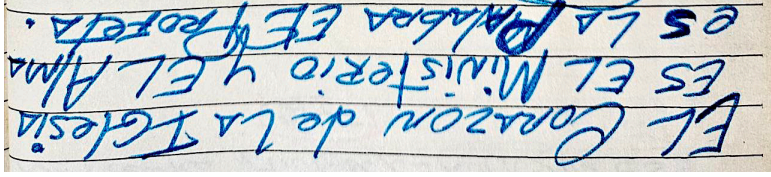 EL Corazon de La Iglesia
ES EL Ministerio y EL Alma
es LA PalAbRA PROFETA.